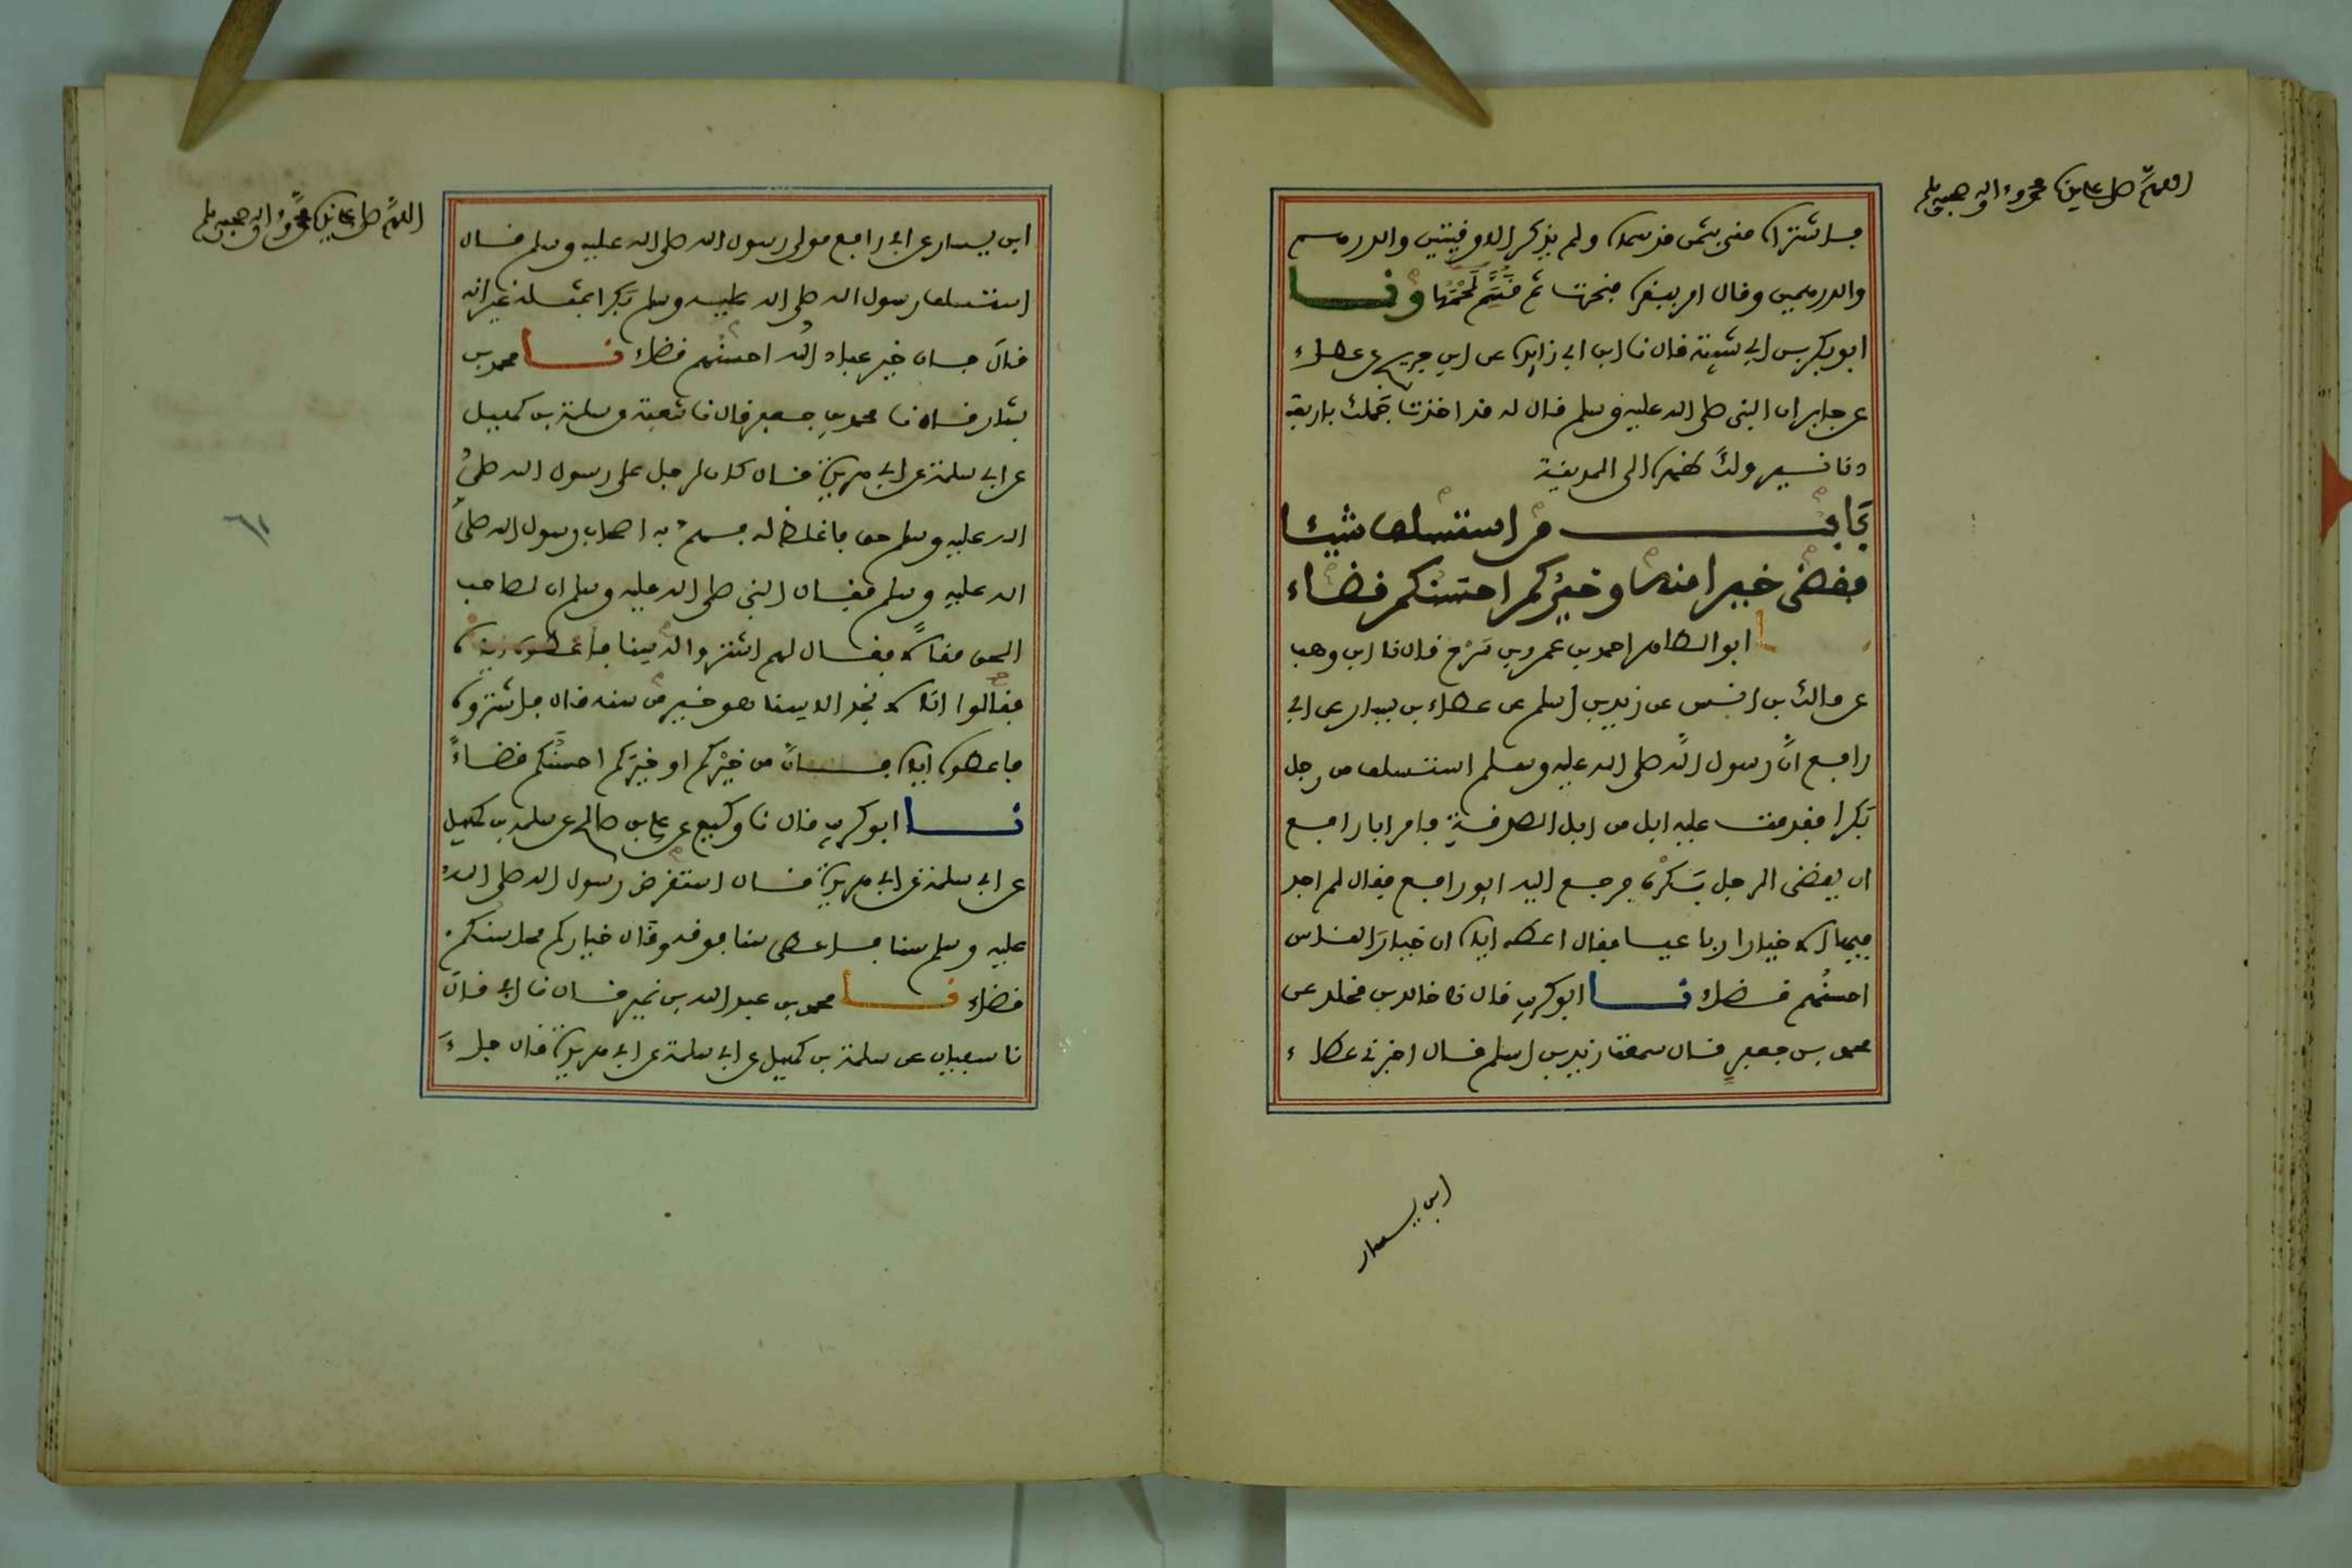 اللهم صل على سيدنا محمد وءاله وصحبه وسلم
فاشتراه مني بثمن قد سماه ولم يذكر الاوقيتين والدرهم
والدرهمين وقال امر ببقرة فنحرت ثم قسم لحمها ونا
ابو بكر بن ابي شيبة قال نا ابن ابي زايدة عن ابن جريج عن عطاء
عن جابر ان النبي صلى الله عليه وسلم قال له قد اخذت جملك باربعة
دنانير ولك ظهره الى المدينة
باب من استسلف شيئا
فقضى خيرا منه وخيركم احسنكم قضاء
ابو الطاهر احمد بن عمرو بن سرح قال نا ابن وهب
عن مالك بن انس عن زيد بن اسلم عن عطاء بن يسار عن ابي
رافع ان رسول الله صلى الله عليه وسلم استسلف من رجل
بكرا فقدمت عليه ابل من ابل الصدقة فامر ابا رافع
ان يقضي الرجل بكره فرجع اليه ابو رافع فقال لم اجد
فيها الا خيارا رباعيا فقال اعطه اياه ان خيار الناس
احسنهم قضاء نا ابو كريب قال نا خالد بن مخلد عن
محمد بن جعفر قال سمعت زيد بن اسلم قال اخبرني عطاء
ابن يسار
اللهم صل على سيدنا محمد وءاله وصحبه وسلم
ابن يسار عن ابي رافع مولى رسول الله صلى الله عليه وسلم قال
استسلف رسول الله صلى الله عليه وسلم بكرا بمثله غير انه
قال فان خير عباد الله احسنهم قضاء نا محمد بن
بشار قال نا محمد بن جعفر قال نا شعبة عن سلمة بن كهيل
عن ابي سلمة عن ابي هريرة قال كان لرجل على رسول الله صلى
الله عليه وسلم حق فاغلظ له فهم به اصحاب رسول الله صلى
الله عليه وسلم فقال النبي صلى الله عليه وسلم ان لصاحب
الحق مقالا فقال لهم اشتروا له سنا فاعطوه اياه
فقالوا انا لا نجد الا سنا هو خير من سنه قال فاشتروه
فاعطوه اياه فان من خيركم او خيركم احسنكم قضاء
نا ابو كريب قال نا وكيع عن علي بن صالح عن سلمة بن كهيل
عن ابي سلمة عن ابي هريرة قال استقرض رسول الله صلى الله
عليه وسلم سنا فاعطى سنا فوقه وقال خياركم محاسنكم
قضاء نا محمد بن عبد الله بن نمير قال نا ابي قال
نا سفيان عن سلمة بن كهيل عن ابي سلمة عن ابي هريرة قال جاء